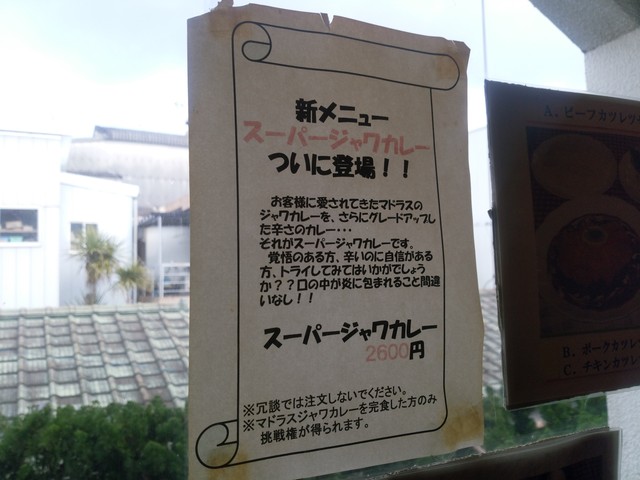 新メニュー
スーパージャワカレー
ついに登場！！
お客様に愛されてきたマドラスの
ジャワカレーを、さらにグレードアップし
た辛さのカレー・・・
それがスーパージャワカレーです。
覚悟のある方、辛いのに自信がある
方、トライしてみてはいかがでしょう
か？？口の中が炎に包まれること間違
いなし！！
スーパージャワカレー
2600円
※冗談では注文しないでください。
※マドラスジャワカレーを完食した方のみ
挑戦権が得られます。
A、ビーフカツレツ
B、ポークカツレ
C、チキンカツレ